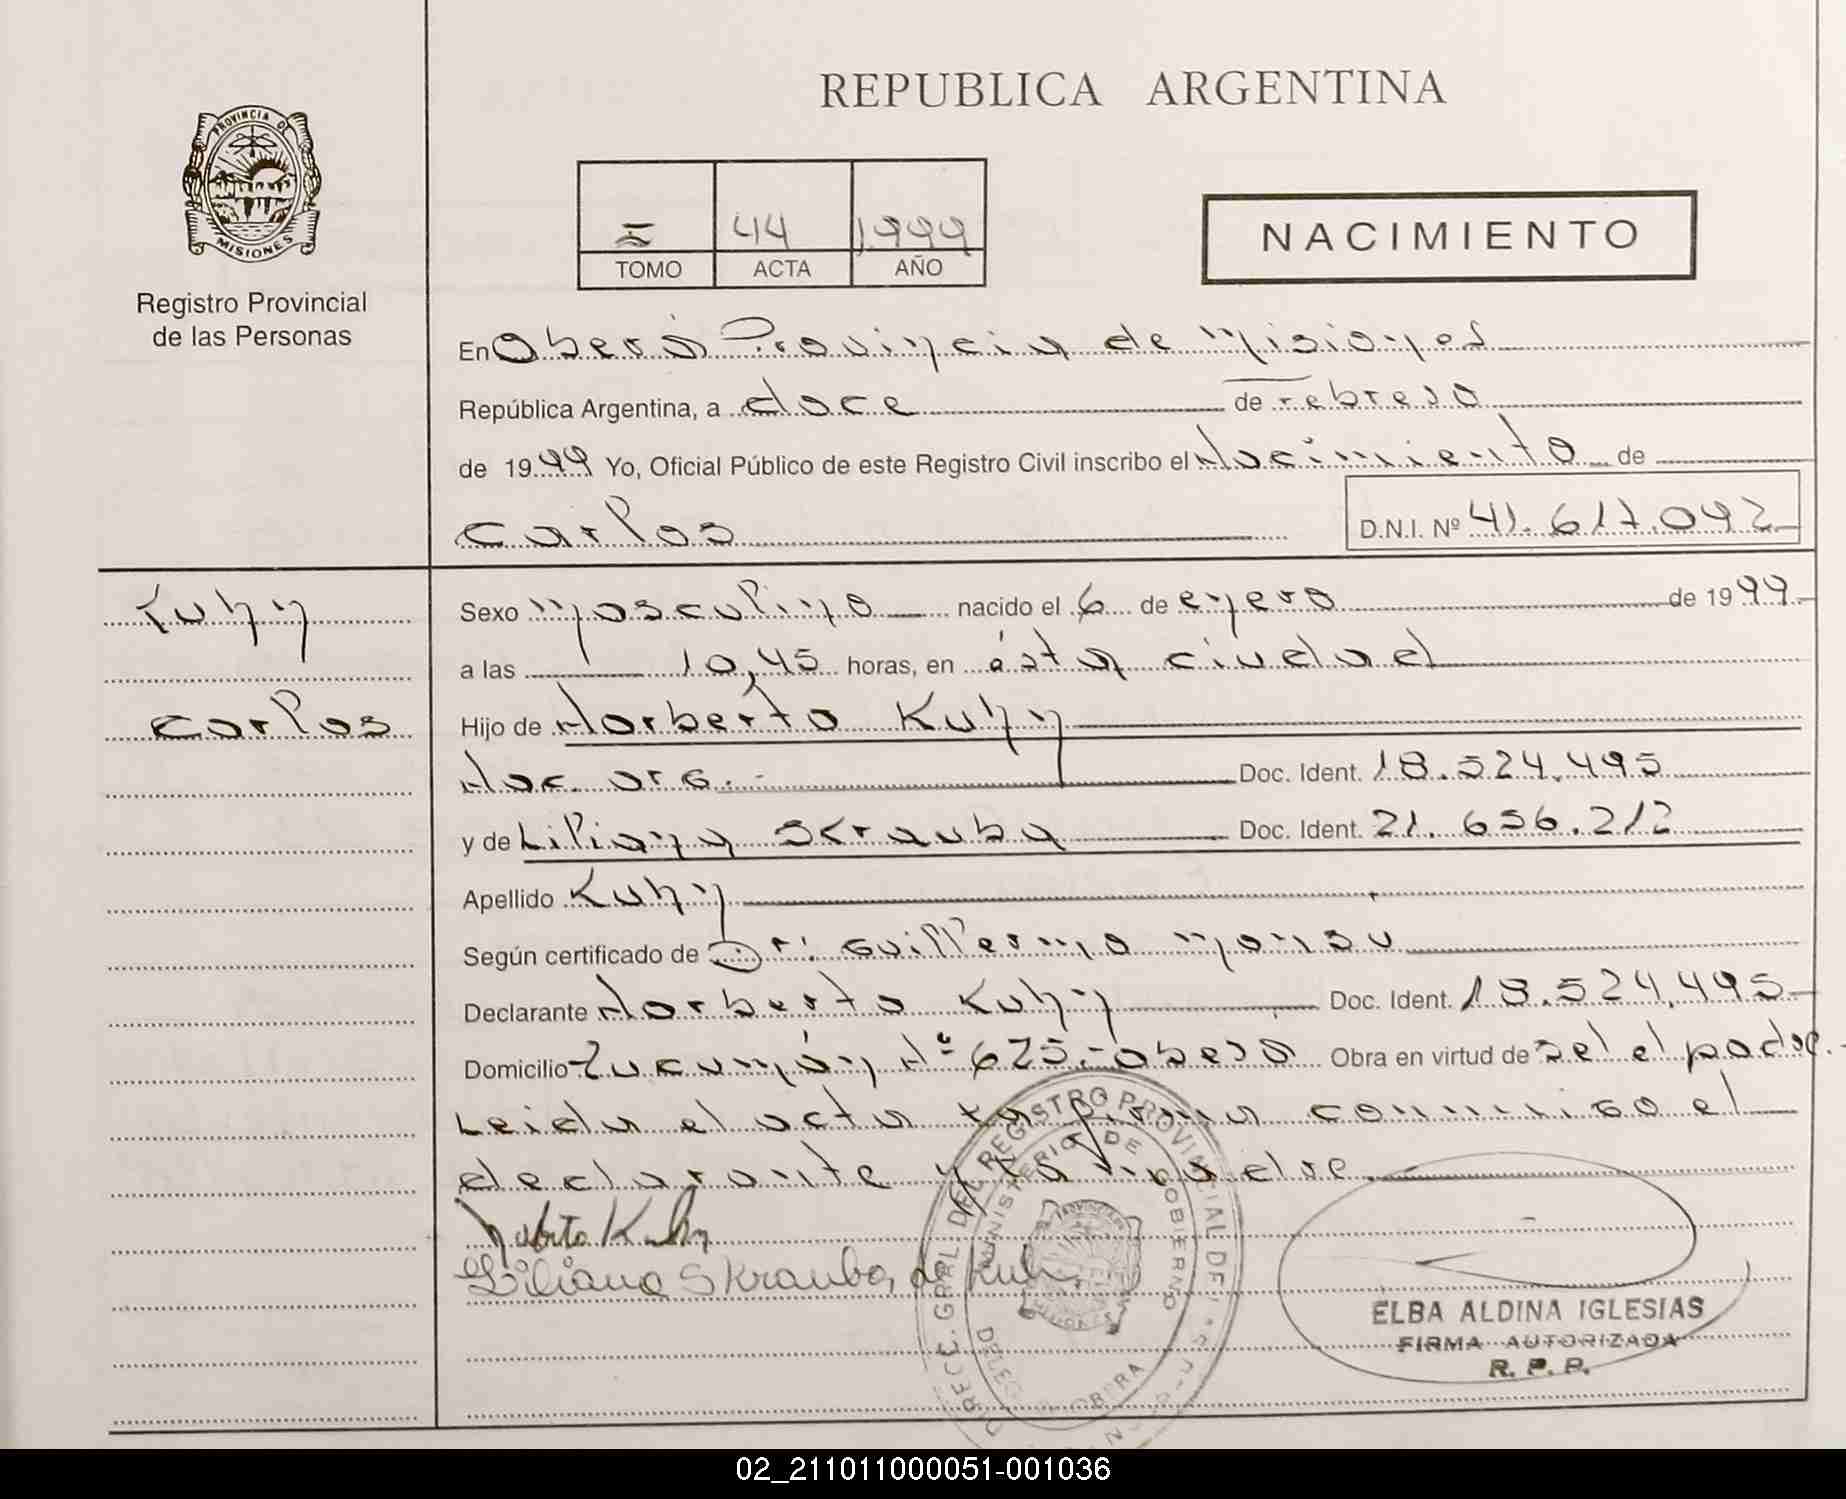 REPUBLICA ARGENTINA
PROVINCIA DE
MISIONES
Registro Provincial
de las Personas
I 44 1999
TOMO ACTA AÑO
NACIMIENTO
En Oberá Provincia de Misiones
República Argentina, a doce de Febrero
de 1999 Yo, Oficial Público de este Registro Civil inscribo el Nacimiento de
Carlos D.N.I. Nº 41.617.092
Kuhn
Sexo masculino nacido el 6 de enero de 1999
a las 10,45 horas, en ésta ciudad
Carlos
Hijo de Norberto Kuhn
Nac. arg. Doc. Ident. 18.524.495
y de Liliana Skrauba Doc. Ident. 21.656.212
Apellido Kuhn
Según certificado de Dr. Guillermo
Declarante Norberto Kuhn Doc. Ident. 18.524.495
Domicilio Tucumán Nº 625.- Oberá Obra en virtud de ser el padre.-
Leida el acta la firma conmigo el
declarante y la madre.
Norberto Kuhn
Liliana Skrauba de Kuhn
DIREC. GRAL. DEL REGISTRO PROVINCIAL DE
MINISTERIO DE GOBIERNO
OBERA
ELBA ALDINA IGLESIAS
FIRMA AUTORIZADA
R. P. P.
02_211011000051-001036